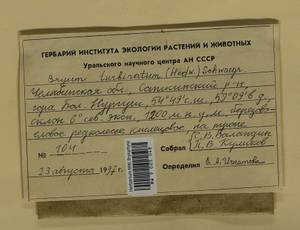 ГЕРБАРИЙ ИНСТИТУТА ЭКОЛОГИИ РАСТЕНИЙ И ЖИВОТНЫХ
Уральского научного центра АН СССР
Bryum turbinatum (Hedw.) Schwaegr.
Челябинская обл., Саткинский р-н,
гора Бол. Нургуш, 54°49' с.ш., 59°09' в.д.
склон 6° сев. экп., 1200 м н.ур.м. березово-
еловое редколесье кисличное, на тропе
№ 104
Собрал С.В. Баландин
П.В. Куликов
23 августа 1997 г.
Определил Е.А. Игнатова